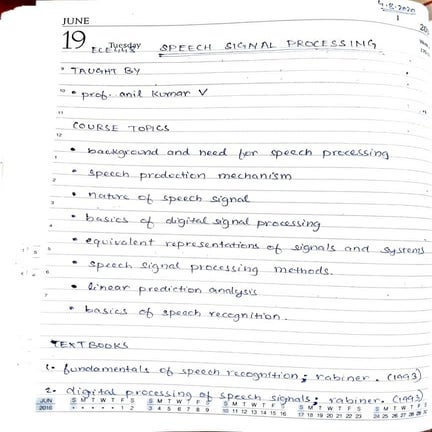 4.8.2020
1
JUNE
19 Tuesday
SPEECH SIGNAL PROCESSING
TAUGHT BY
• prof. anil kumar V
COURSE TOPICS
• background and need for speech processing
• speech production mechanism
• nature of speech signal
• basics of digital signal processing
• equivalent representations of signals and systems
• speech signal processing methods.
• linear prediction analysis
• basics of speech recognition.
TEXTBOOKS
1. fundamentals of speech recognition; rabiner. (1993)
2. digital processing of speech signals; rabiner. (1993)
JUN S M T W T F S S M T W T F S S M T W T F S S M T W T F S S M T W T F S
2018 • • • • • 1 2 3 4 5 6 7 8 9 10 11 12 13 14 15 16 17 18 19 20 21 22 23 24 25 26 27 28 29